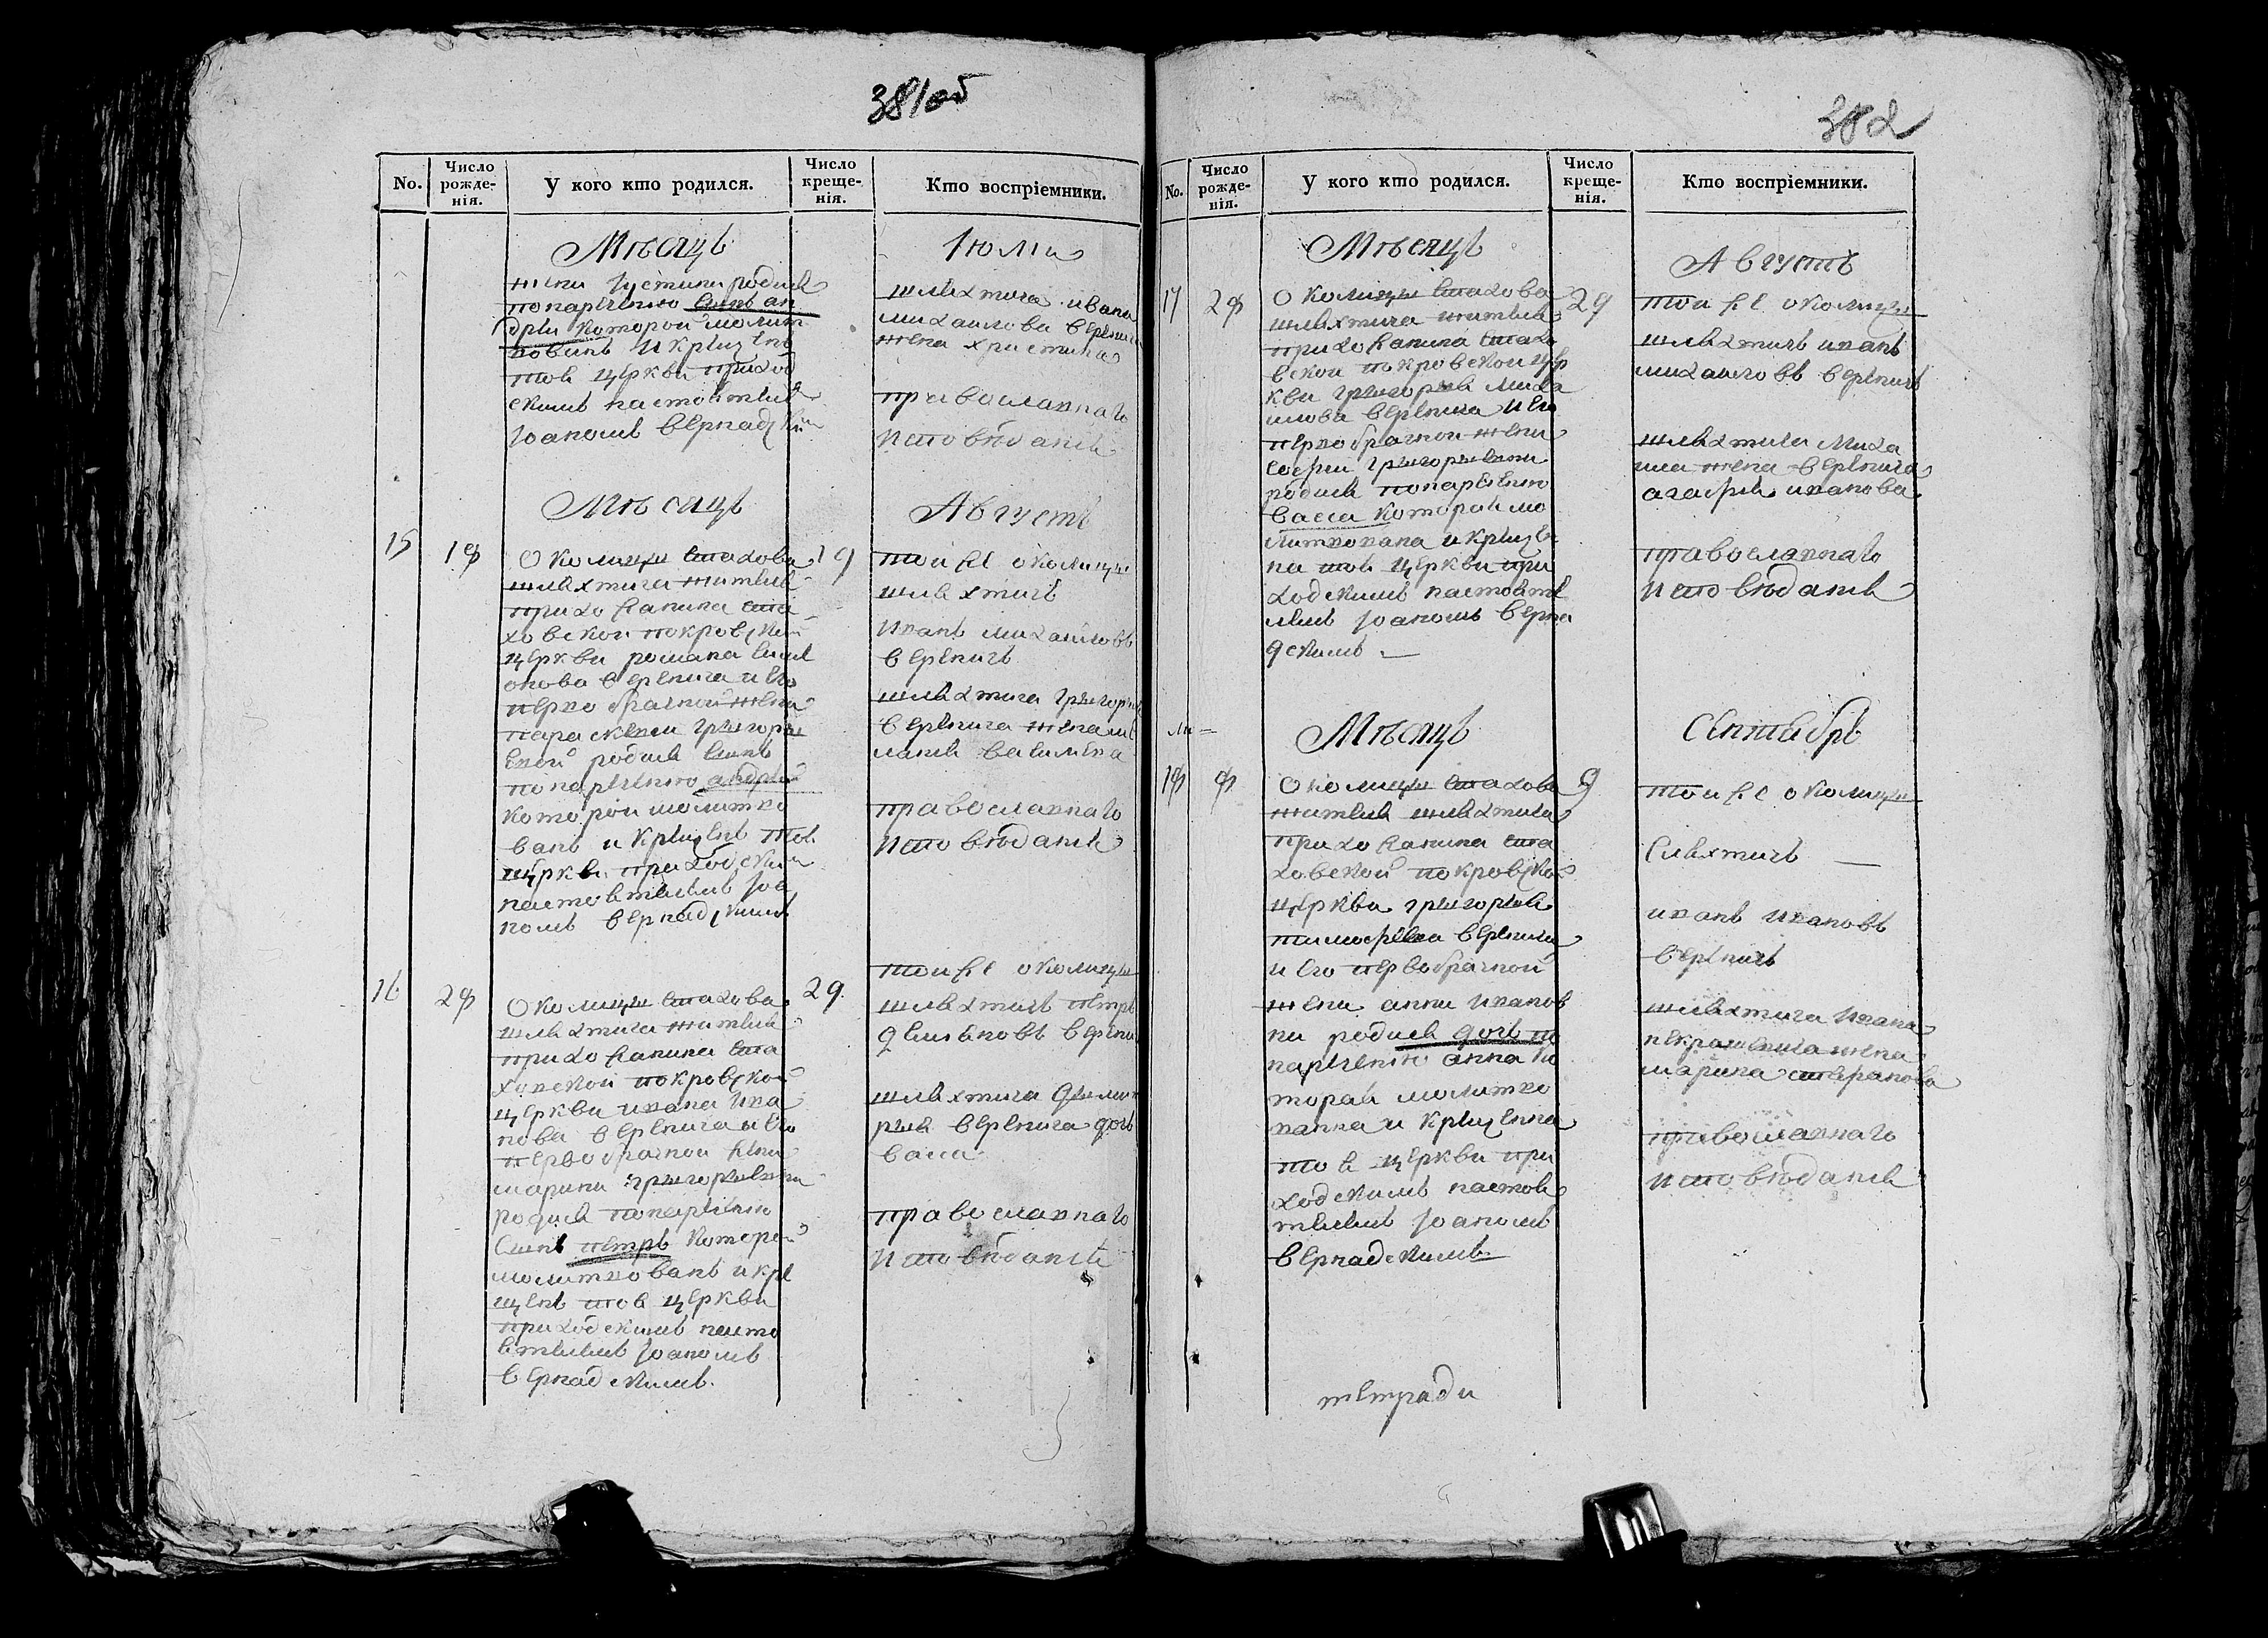 381об
No.
Число рожденія.
У кого кто родился.
Число крещенія.
Кто воспріемники.
Мѣсяцъ
Іюля
жены Іустины родися
понареченію сынъ ан
дрей которой молит
вованъ и крещенъ
тоя церкви приход
скимъ настоятелемъ
Іоаномъ Вернадским
шляхтича ивана
михаилова веренича
жена христина
православнаго
исповѣданія
Мѣсяцъ
Августъ
15
18
околицы Стахова
шляхтича жителя
прихожанина Ста
ховской покровской
церкви романа Симе
онова веренича и его
первобрачной жены
параскевеи григоры
евой родися сынъ
понареченію андрей
которой молитво
ванъ и крещенъ тоя
церкви приходским
настоятелемъ Іоа
номъ Вернадскимъ
19
той же околицы
шляхтичъ
иванъ михаиловъ
вереничъ
шляхтича григорыя
веренича жена
васильева
православнаго
исповѣданія
16
28
околицы Стахова
шляхтича жителя
прихожанина Ста
ховской покровской
церкви ивана ива
нова веренича и его
первобрачной жены
марыны григорыевны
родися понареченію
сынъ петръ которой
молитвованъ и кре
щенъ тоя церкви
приходскимъ насто
ятелемъ Іоаномъ
Вернадскимъ.
29
той же околицы
шляхтичъ петръ
демяновъ веренич
шляхтича
веренича дочь
васса
православнаго
исповѣданія
382
No.
Число рожденія.
У кого кто родился.
Число крещенія.
Кто воспріемники.
Мѣсяцъ
Августъ
17
28
околицы Стахова
шляхтича жителя
прихожанина Стахо
вской покровской цер
кви григорыя миха
илова веренича и его
первобрачной жены
софеи григорыевны
родися понареченію
васса которая мо
литвована и креще
на тоя церкви при
ходскимъ настояте
лемъ Іоаномъ Верна
дскимъ
29
той же околицы
шляхтичъ иванъ
михаиловъ вереничъ
шляхтича миха
ила жена веренича
агафия иванова
православнаго
исповѣданія
Мѣсяцъ
Сентябрь
18
8
околицы Стахова
жителя шляхтича
прихожанина Ста
ховской покровской
церкви григорыя
тимофеева веренича
и его первобрачной
жены анны иванов
ны родися дочь по
нареченію анна ко
торая молитво
ванна и крещенна
тоя церкви при
ходскимъ настоя
телемъ Іоаномъ
Вернадскимъ
9
той же околицы
Сляхтичъ
иванъ ивановъ
вереничъ
шляхтича ивана
некрашевича жена
марина стефанова
православнаго
исповѣданія
тетради